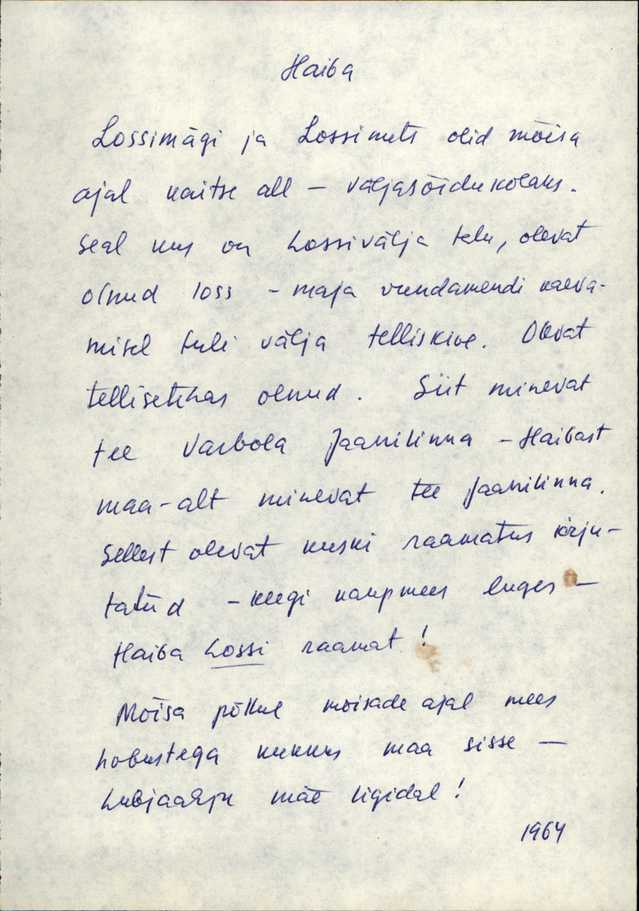 Haiba
Lossimägi ja Lossimets olid mõisa
ajal kaitse all – väljasõidukolaks.
Seal kus on Lossivälja talu, olevat
olnud loss – maja vundamendi kaeva-
misel tuli välja telliskive. Olevat
tellisetehas olnud. Siit minevat
tee Varbola Jaanilinna – Haibast
maa-alt minevat tee Jaanilinna.
Sellest olevat kuski raamatus kirju-
tatud – keegi kaupmees luges –
Haiba Lossi raamat!
Mõisa põllul moisade ajal mees
hobustega kukkus maa sisse –
Lubjaahju mäe ligidal!
1964